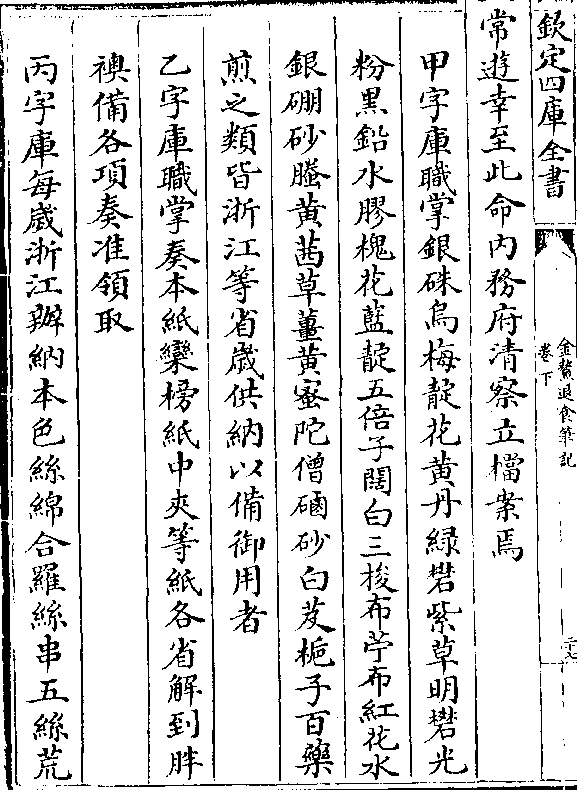 欽定四庫全書
金鰲退食筆記
卷下
常遊幸至此命內務府清察立檔案焉
甲字庫職掌銀硃烏梅靛花黃丹綠礬紫草明礬光
粉黑鉛水膠槐花藍靛五倍子闊白三梭布苧布紅花水
銀硼砂螣黃茜草薑黃蜜陀僧硇砂白芨梔子百藥
煎之類皆浙江等省歲供納以備御用者
乙字庫職掌奏本紙欒榜紙中夾等紙各省解到胖
襖備各項奏准領取
丙字庫每歲浙江辦納本色絲綿合羅絲串五絲荒